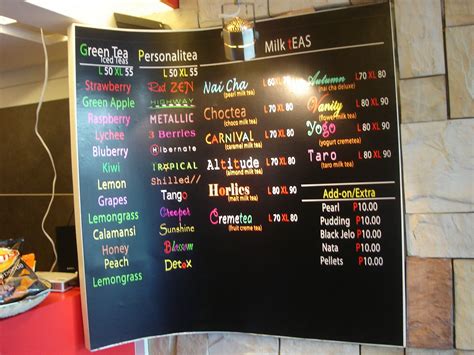 Green Tea
Iced Teas
L 50 XL 55
Strawberry
Green Apple
Raspberry
Lychee
Bluberry
Kiwi
Lemon
Grapes
Lemongrass
Calamansi
Honey
Peach
Lemongrass
Personalitea
L 50 XL 55
Red ZEN
HIGHWAY
METALLIC
3 Berries
Hibernate
TROPICAL
Shilled//
Tango
Creeper
Sunshine
Blossom
Detox
Milk tEAS
Nai Cha L 60 XL 70
(pearl milk tea)
Choctea L 70 XL 80
(choco milk tea)
CARNIVAL L 70 XL 80
(caramel milk tea)
Altitude L 70 XL 80
(almond milk tea)
Horlies L 70 XL 80
(malt milk tea)
Cremetea L 70 XL 90
(fruit creme tea)
Autumn L 70 XL 80
(nai cha deluxe)
Vanity L 80 XL 90
(flower milk tea)
Yogo L 80 XL 90
(yogurt cremetea)
Taro L 80 XL 90
(taro milk tea)
Add-on/Extra
Pearl P10.00
Pudding P10.00
Black Jelo P10.00
Nata P10.00
Pellets P10.00